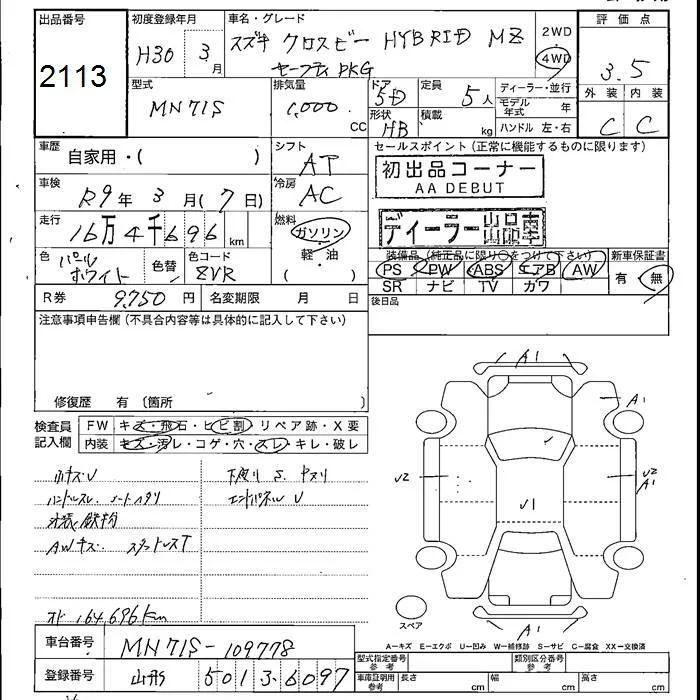 出品番号
2113
初度登録年月
H30 3月
車名・グレード
スズキ クロスビー HYBRID MZ
セーフティPKG
2WD
4WD
評価点
3.5
外装 内装
C C
型式
MN71S
排気量
1,000 cc
ドア
5D
形状
HB
定員
5人
積載
kg
ディーラー・並行
モデル年式 年
ハンドル 左・右
車歴
自家用・( )
シフト
AT
セールスポイント (正常に機能するものに限ります)
初出品コーナー
AA DEBUT
ディーラー出品車
車検
R9年 3月(7日)
冷房
AC
走行
16万4千696km
燃料
ガソリン
軽・油
( )
色
パールホワイト
色替
色コード
ZVR
装備品(純正品に限り○をつけて下さい)
PS PW ABS エアB AW
SR ナビ TV カワ
新車保証書
有 無
R券 9,750円
名変期限 月 日
後日品
注意事項申告欄(不具合内容等は具体的に記入して下さい)
修復歴 有〔箇所 〕
検査員記入欄
FW キズ・飛石・ヒビ割 リペア跡・X要
内装 キズ・汚レ・コゲ・穴・スレ・キレ・破レ
ハンドルスレ、シートヘタリ
下廻り S. ヤスリ
エンドパネル U
外装鉄粉
AWキズ、スタッドレスT
オド 164,696km
A1
A1
U2
U2
A1
U1
A1
スペア
A−キズ E−エクボ U−凹み W−補修跡 S−サビ C−腐食 XX−交換済
車台番号
MN71S-109778
登録番号
山形 501 3 6097
型式指定番号 参考
類別区分番号 参考
車庫証明用 参考
長さ cm
幅 cm
高さ cm